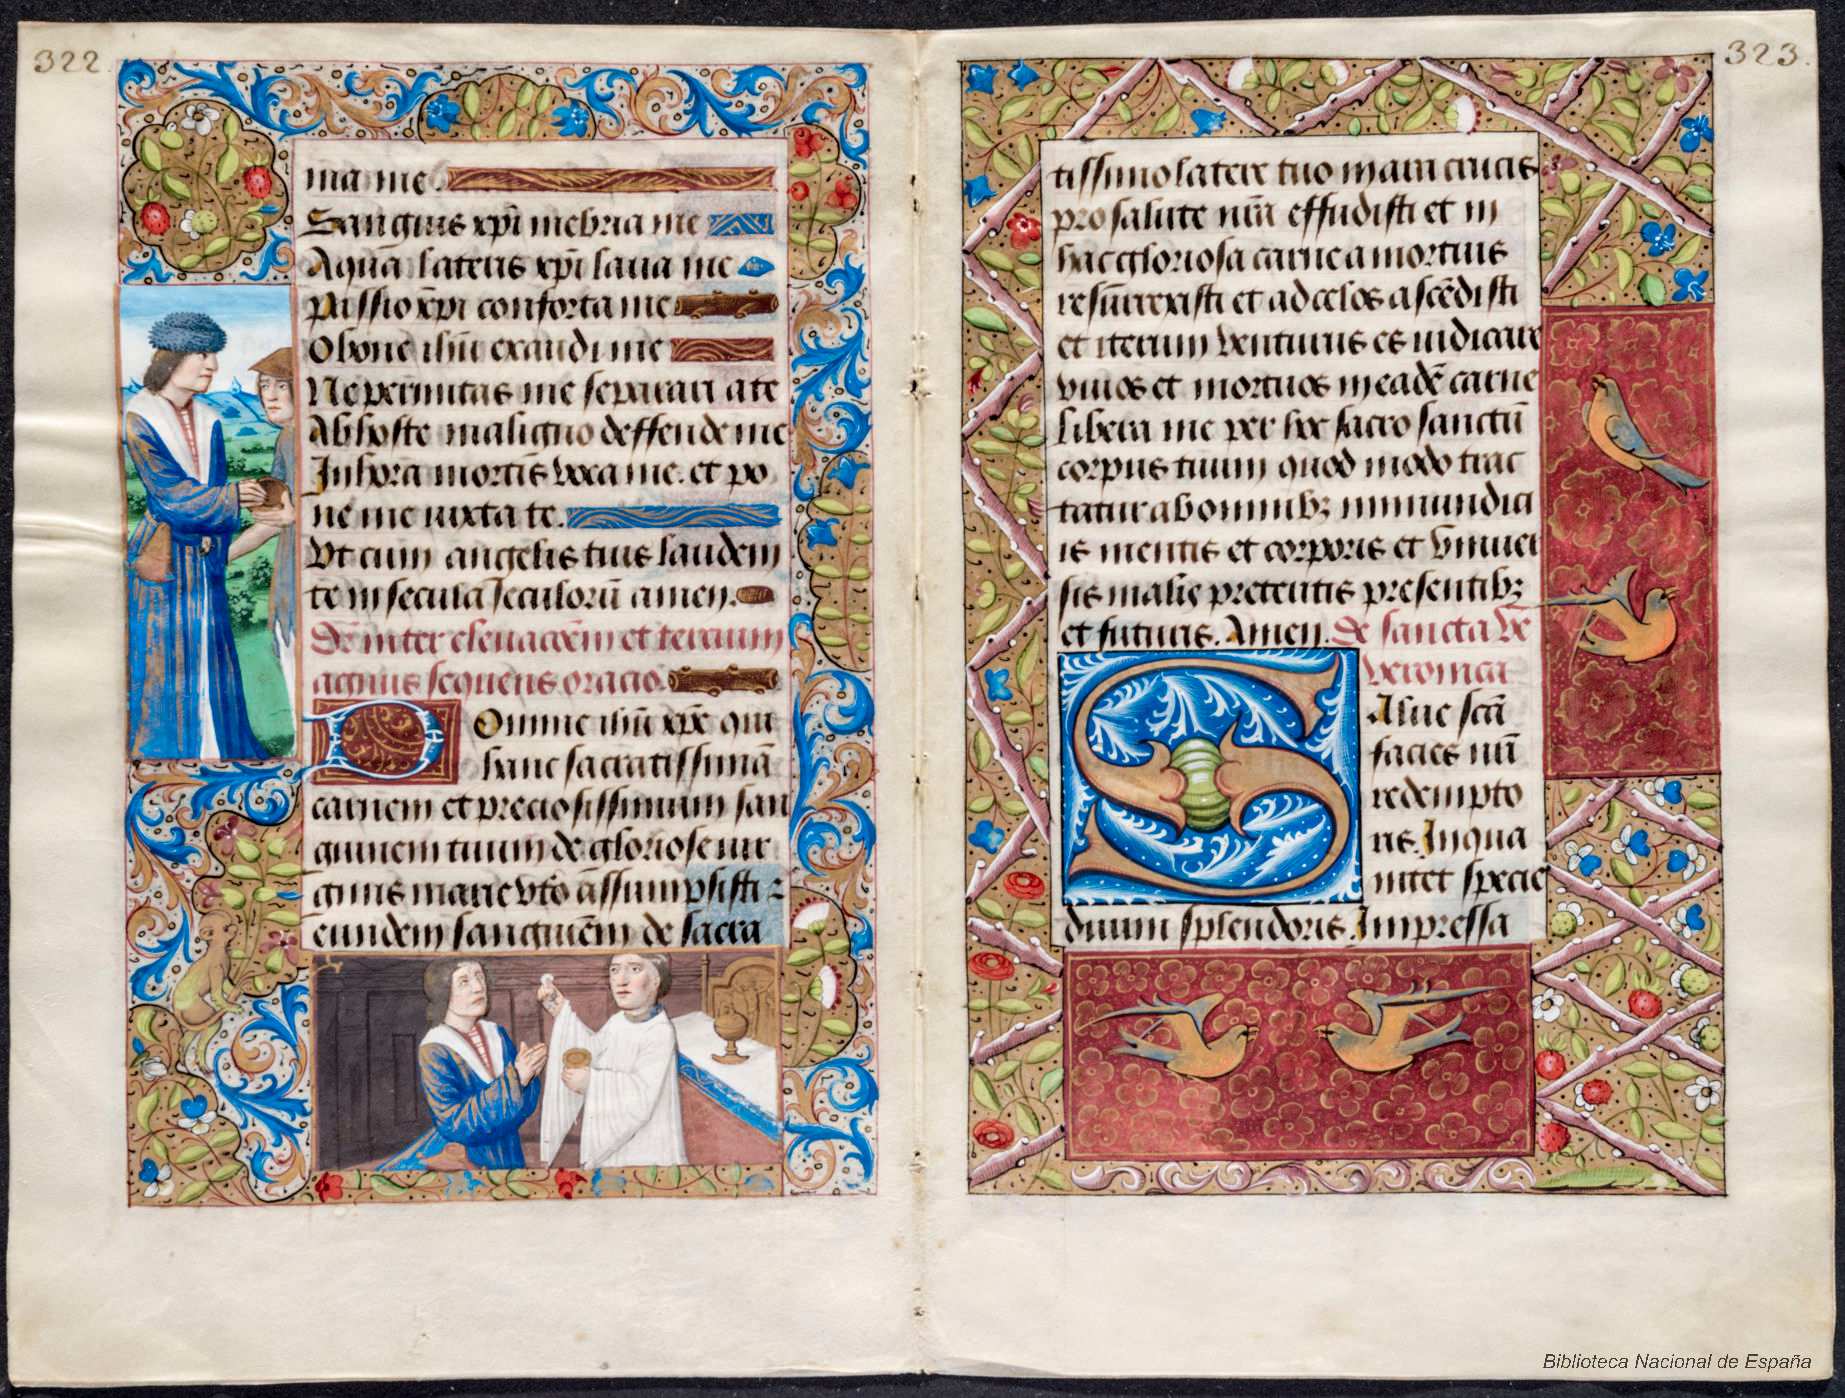 322
ma me.
Sanguis xp̄i inebria me
Aqua lateris xp̄i laua me
Passio xp̄i conforta me
O bone ih̄u exaudi me
Ne permittas me separari a te
Ab hoste maligno deffende me
In hora mortis voca me. et po
ne me iuxta te.
Vt cum angelis tuis laudem
te in secula seculorū amen.
inter eleuacōem et tercium
agnus sequens oracio.
Domine ih̄u xp̄e qui
hanc sacratissimā
carnem et preciosissimum san
guinem tuum de gloriose vir
ginis marie vt̄o assumpsisti
eundem sanguinem de sacra
323.
tissimo latere tuo in ara crucis
pro salute nr̄a effudisti et in
hac gloriosa carne a mortuis
resurrexisti et ad celos ascēdisti
et iterum venturus es iudicare
viuos et mortuos in eadē carne
libera me per hoc sacro sanctū
corpus tuum quod modo trac
tatur ab omnibꝫ inmundici
is mentis et corporis et vniuer
sis malis preteritis presentibꝫ
et futuris. Amen. De sancta ve
veronica
Salue scā
facies nr̄i
redempto
ris. In qua
nitet specie
diuini splendoris. Impressa
Biblioteca Nacional de España